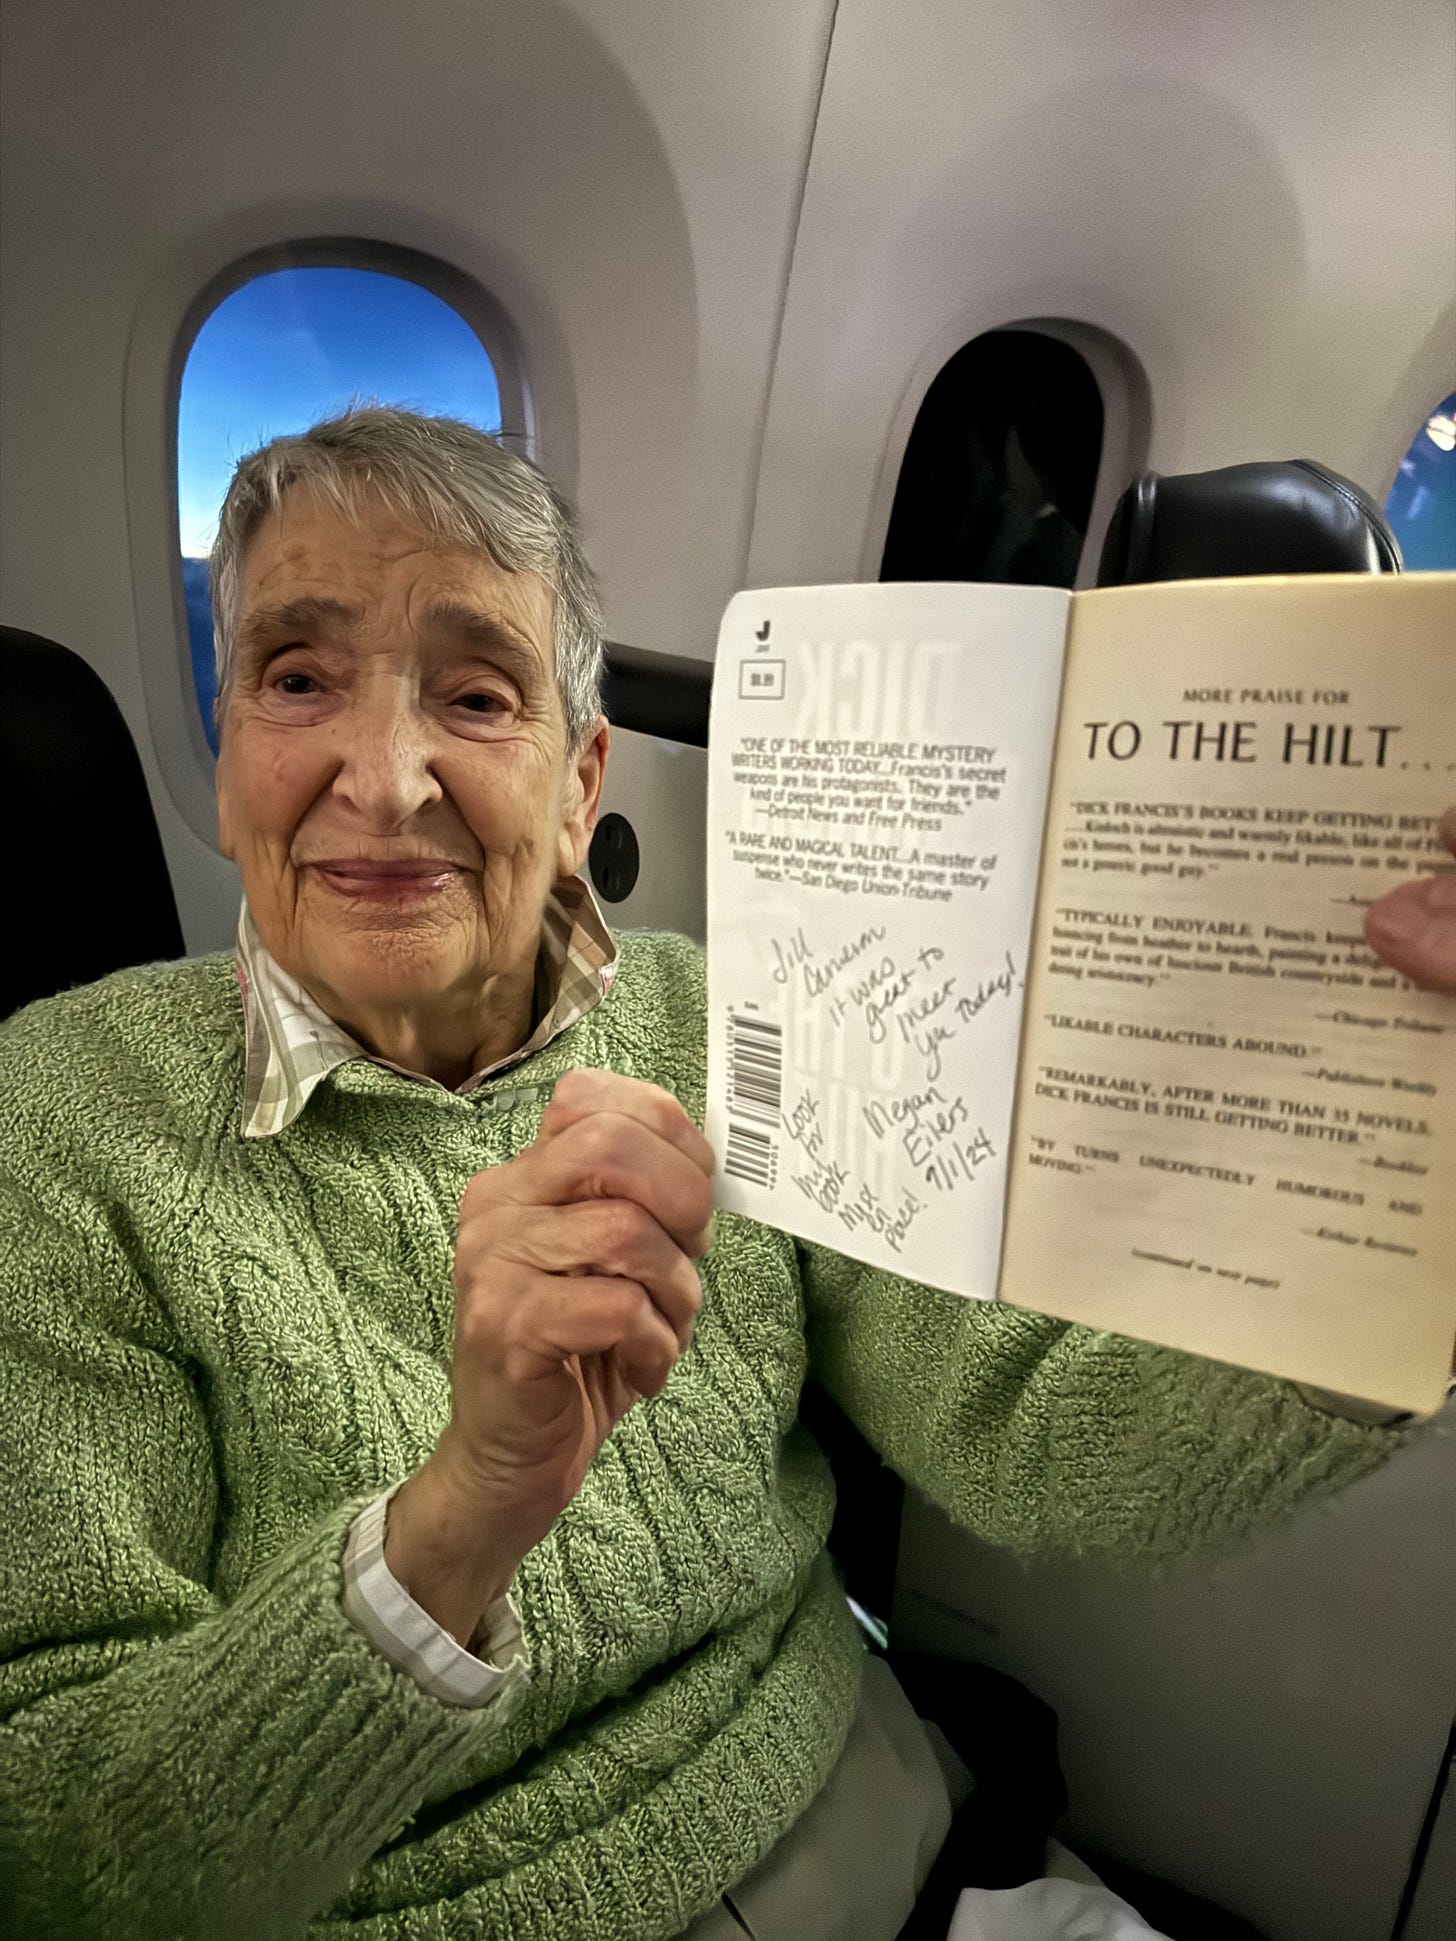 DICK
"ONE OF THE MOST RELIABLE MYSTERY
WRITERS WORKING TODAY...Francis's secret
weapons are his protagonists. They are the
kind of people you want for friends."
—Detroit News and Free Press
"A RARE AND MAGICAL TALENT...A master of
suspense who never writes the same story
twice."—San Diego Union-Tribune
Jill
Cameron
It was
great to
meet
you today!
Megan
Eilers
Look
for
my
book
Myst
en
place!
MORE PRAISE FOR
TO THE HILT...
"DICK FRANCIS'S BOOKS KEEP GETTING BET
....Kinloch is altruistic and warmly likable, like all of F
cis's heroes, but he becomes a real person on the
not a generic good guy."
"TYPICALLY ENJOYABLE. Francis keeps
bouncing from heather to hearth, painting a
trait of his own of luscious British countryside and a
doing aristocracy."
—Chicago Tribune
"LIKABLE CHARACTERS ABOUND."
—Publishers Weekly
"REMARKABLY, AFTER MORE THAN 35 NOVELS,
DICK FRANCIS IS STILL GETTING BETTER."
—Booklist
"BY TURNS UNEXPECTEDLY HUMOROUS AND
MOVING."
—Kirkus Reviews
(continued on next page)